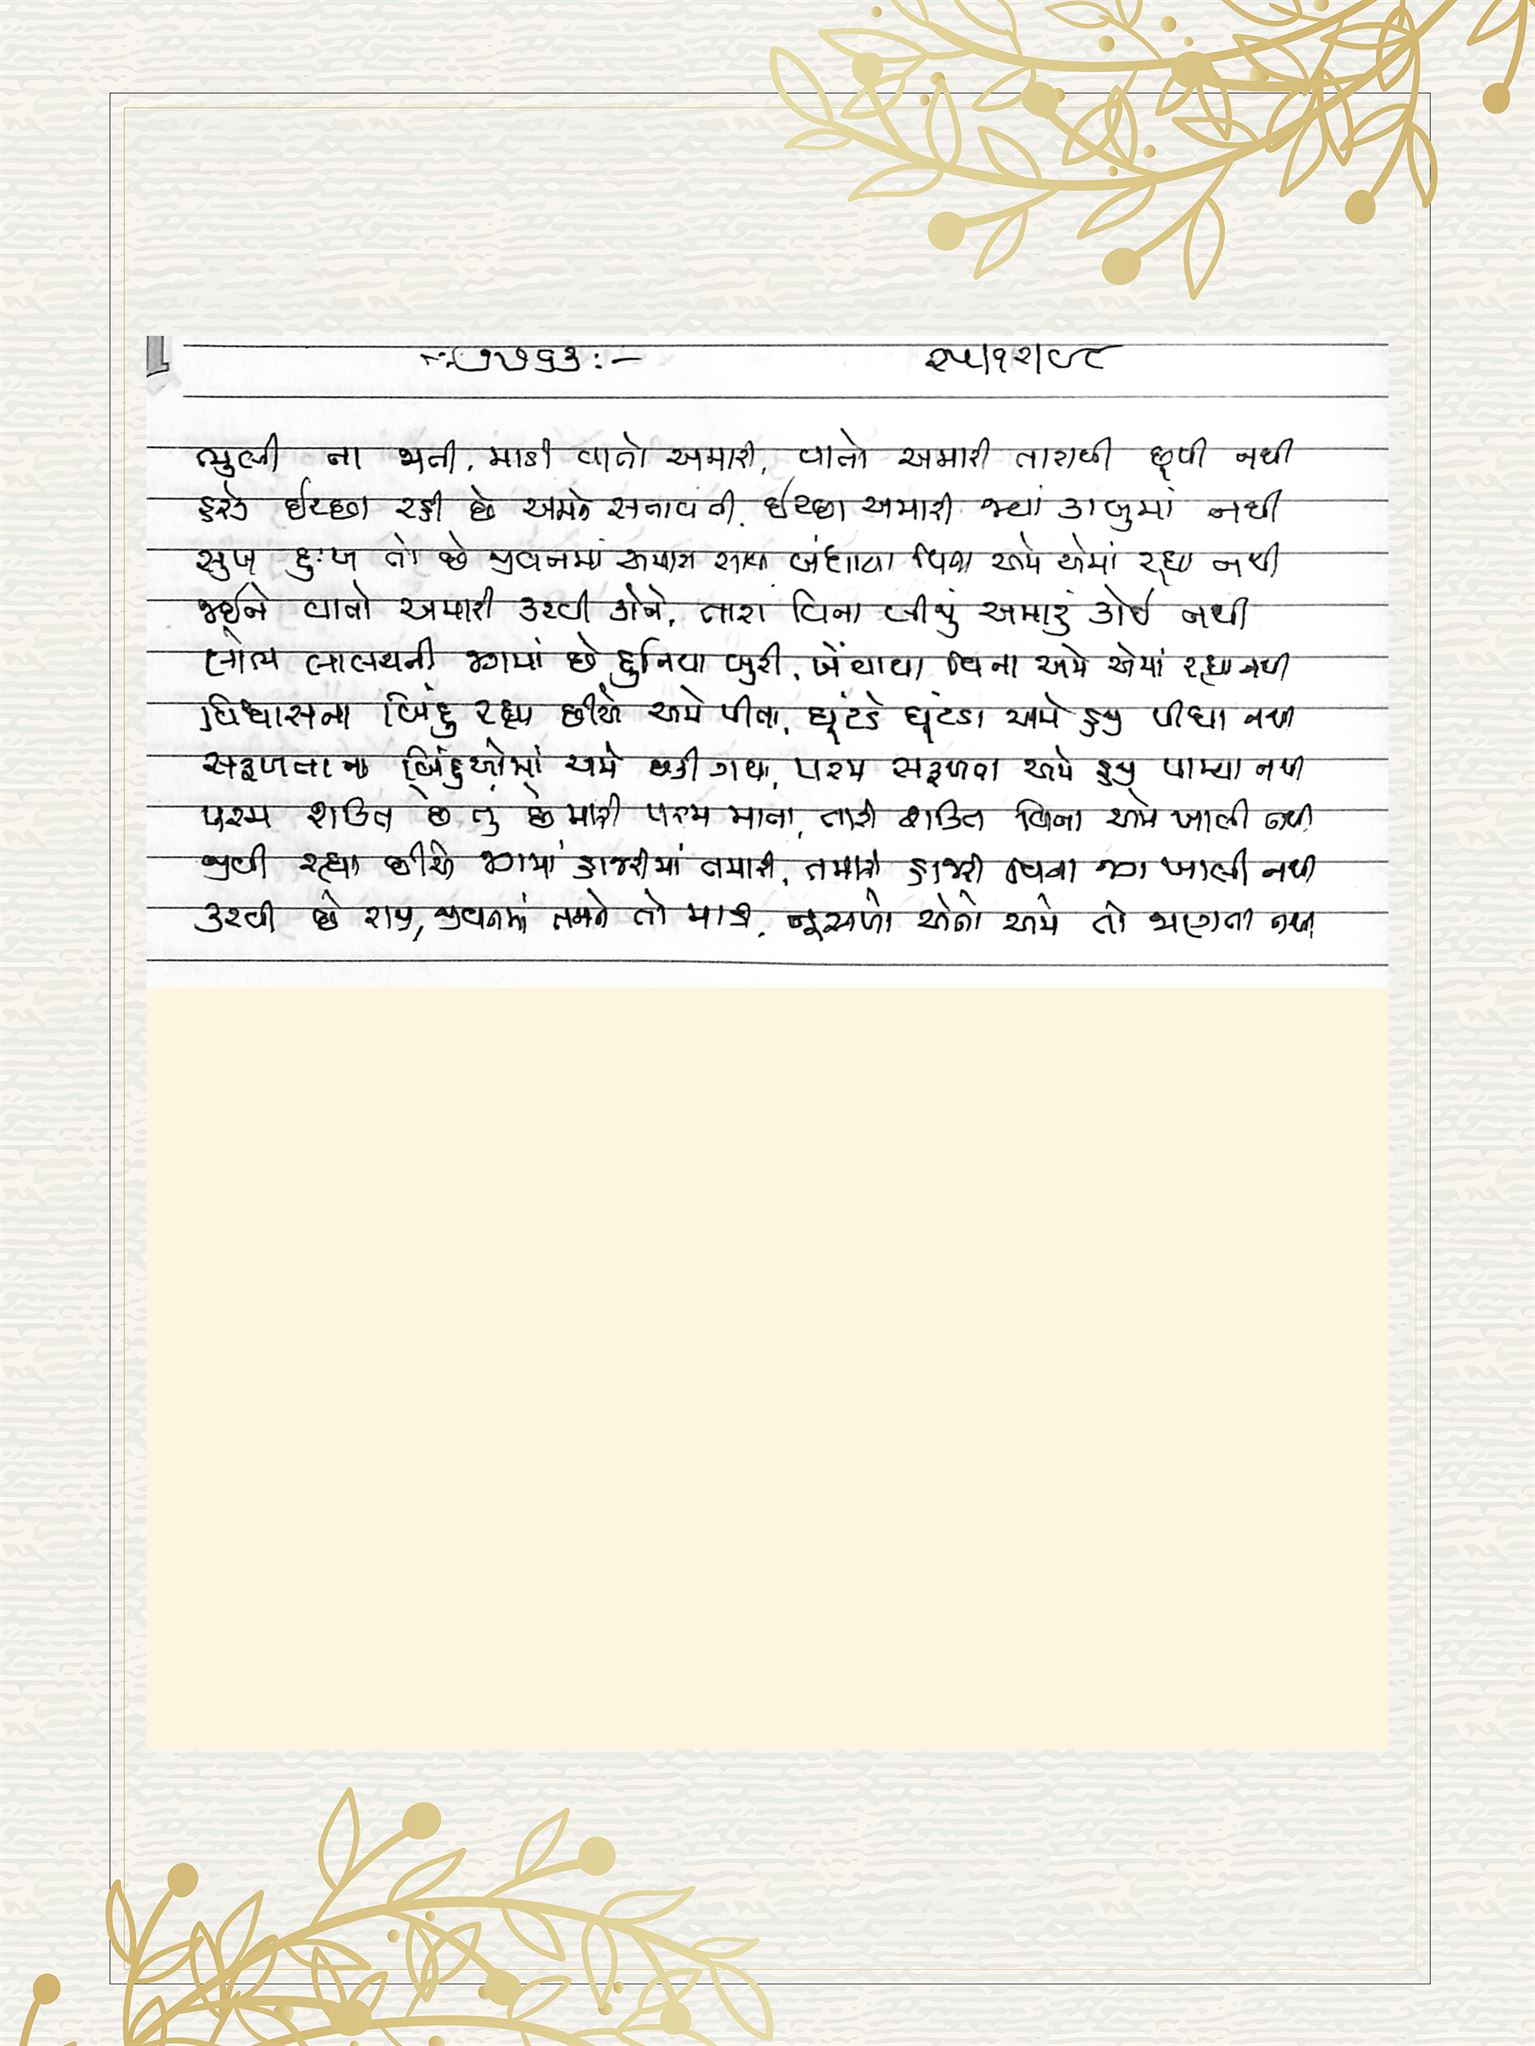 ૨૫/૧૨/૯૮
ભુલી ના જતી, માડી વાતો અમારી, વાતો અમારી તારાથી છૂપી નથી
હરેક ઈચ્છા રહી છે અમને સતાવતી, ઈચ્છા અમારી જ્યાં કાબુમાં નથી
સુખ દુઃખ તો છે જીવનમાં અમારા સાથી, બંધાયા વિના અમે એમાં રહ્યા નથી
જઈને વાતો અમારી કરવી કોને, તારા વિના બીજું અમારું કોઈ નથી
લોભ લાલચની જગમાં છે દુનિયા બુરી, ખેંચાયા વિના અમે એમાં રહ્યા નથી
વિશ્વાસના બિંદુ રહ્યા છીએ અમે પીતા, ઘૂંટડે ઘૂંટડા અમે હજુ પીધા નથી
સફળતાના બિંદુઓમાં અમે છકી ગયા, પરમ સફળતા અમે હજુ પામ્યા નથી
પરમ શક્તિ છે તું છે મારી પરમ માતા, તારી શક્તિ વિના અમે ખાલી નથી
જીવી રહ્યા છીએ જગમાં હાજરીમાં તમારી, તમારી હાજરી વિના જગ ખાલી નથી
કરવી છે રાજી, જીવનમાં તમને તો માત્ર, નુસખો એનો અમે તો જાણતા નથી